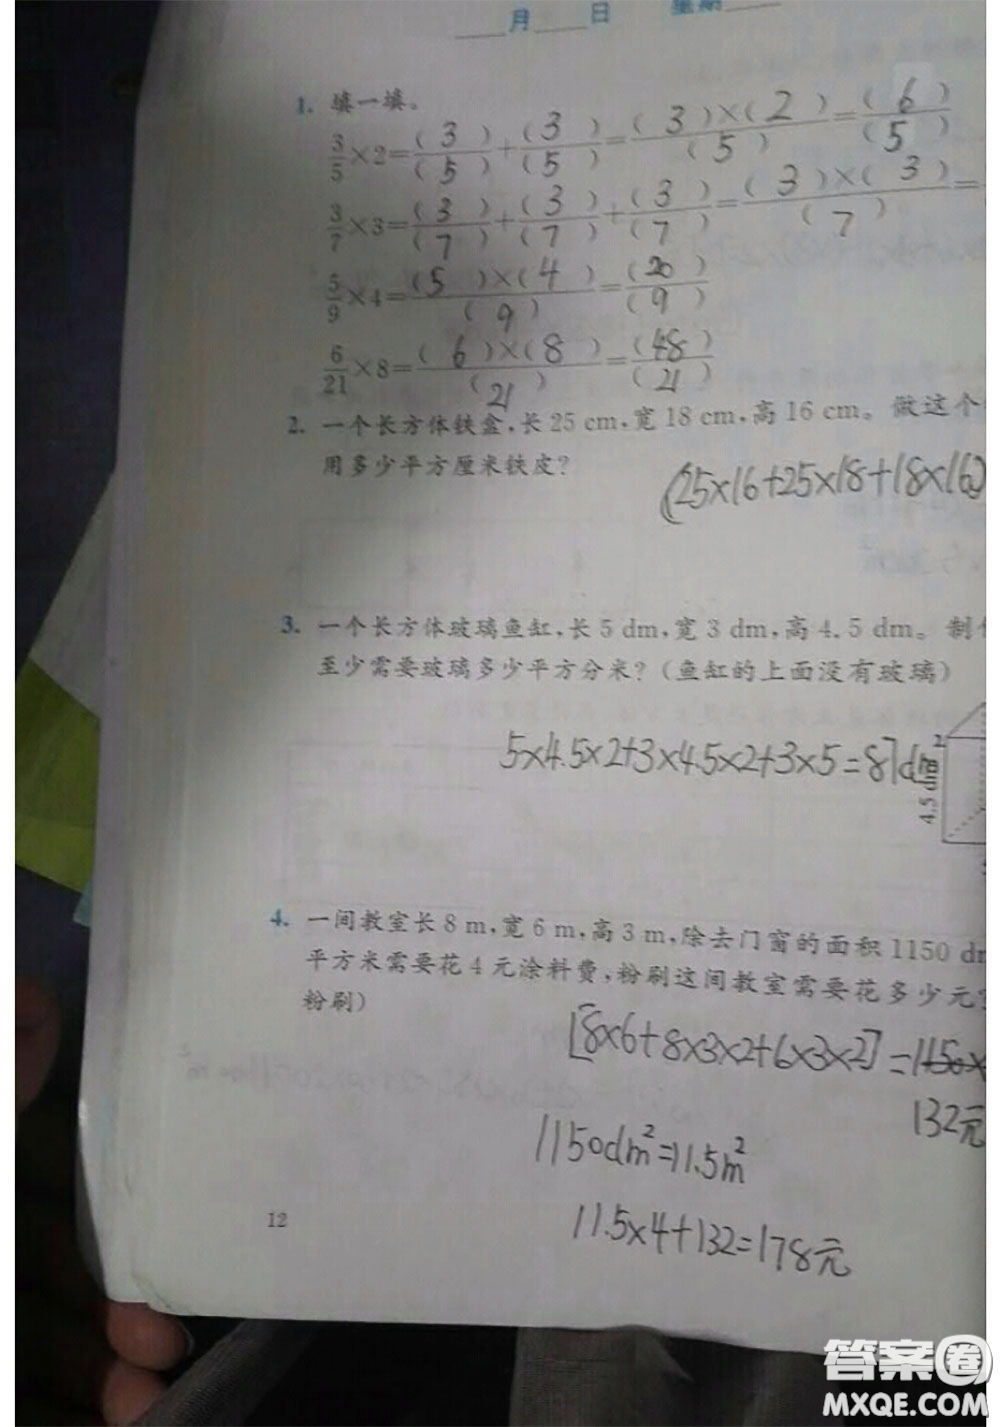 月 日 星期
1. 填一填。
3/5×2=(3)/(5)+(3)/(5)=(3)×(2)/(5)=(6)/(5)
3/7×3=(3)/(7)+(3)/(7)+(3)/(7)=(3)×(3)/(7)=
5/9×4=(5)×(4)/(9)=(20)/(9)
6/21×8=(6)×(8)/(21)=(48)/(21)
2. 一个长方体铁盒,长25 cm,宽18 cm,高16 cm。做这个
用多少平方厘米铁皮?
(25×16+25×18+18×16)
3. 一个长方体玻璃鱼缸,长5 dm,宽3 dm,高4.5 dm。制
至少需要玻璃多少平方分米?(鱼缸的上面没有玻璃)
5×4.5×2+3×4.5×2+3×5=87dm²
4.5 dm
4. 一间教室长8 m,宽6 m,高3 m,除去门窗的面积1150
平方米需要花4元涂料费,粉刷这间教室需要花多少元?
粉刷)
[8×6+8×3×2+6×3×2]=1150×
132元
1150dm²=11.5m²
11.5×4+132=178元
12
答案圈
MXQE.COM